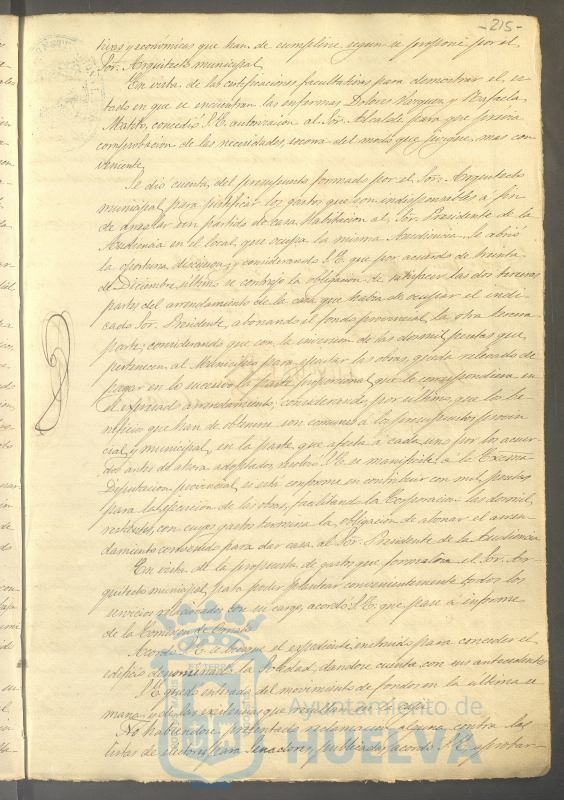 -215-
ticas y económicas que han de cumplirse segun se propone por el
Sor. Arquitecto municipal.
En vista de las certificaciones facultativas para demostrar el es-
tado en que se encuentran las enfermas Dolores Vazquez y Rafaela
Matito, concedió S.E. autorizacion al Sor. Alcalde para que previa
comprobacion de las necesidades socorra del modo que juzgue mas con-
veniente.
Se dió cuenta del presupuesto formado por el Sor. Arquitecto
municipal para justificar los gastos que son indispensables á fin
de arreglar un partido de casa habitacion al Sor. Presidente de la
Audiencia en el local que ocupa la misma Audiencia. Se abrió
la oportuna discusion, y considerando S.E. que por acuerdo de treinta
de Diciembre último se contrajo la obligacion de satisfacer las dos terceras
partes del arrendamiento de la casa que habia de ocupar el indi-
cado Sor. Presidente, abonando el fondo provincial la otra tercera
parte; considerando que con la inversion de las dos mil pesetas que
pertenecen al Municipio para ejecutar las obras, queda relevado de
pagar en lo sucesivo la parte proporcional que le correspondiera en
el expresado arrendamiento; considerando por ultimo que los be-
neficios que han de obtenerse son comunes á los presupuestos provin-
cial y municipal, en la parte que afecta á cada uno por los acuer-
dos antes de ahora adoptados, resolvió S.E. se manifieste á la Excma.
Diputacion provincial, si está conforme en contribuir con mil pesetas
para la ejecucion de las obras, facilitando la Corporacion las dos mil
restantes, con cuyos gastos termina la obligacion de abonar el arren-
damiento convenido para dar casa al Sor. Presidente de la Audiencia.
En vista de la propuesta de gastos que formaliza el Sor. Ar-
quitecto municipal para poder plantear convenientemente todos los
servicios relacionados con su cargo, acordó S.E. que pase á informe
de la Comision de Ornato.
Acordó S.E. se busque el expediente instruido para conceder el
edificio denominado la Soledad, dandose cuenta con sus antecedentes.
S.E. quedó enterado del movimiento de fondos en la última se-
mana y de las existencias que resultan en caja.
No habiendose presentado reclamacion alguna contra las
listas de electores para Senadores publicadas, acordó S.E. aprobar-
Ayuntamiento de
HUELVA